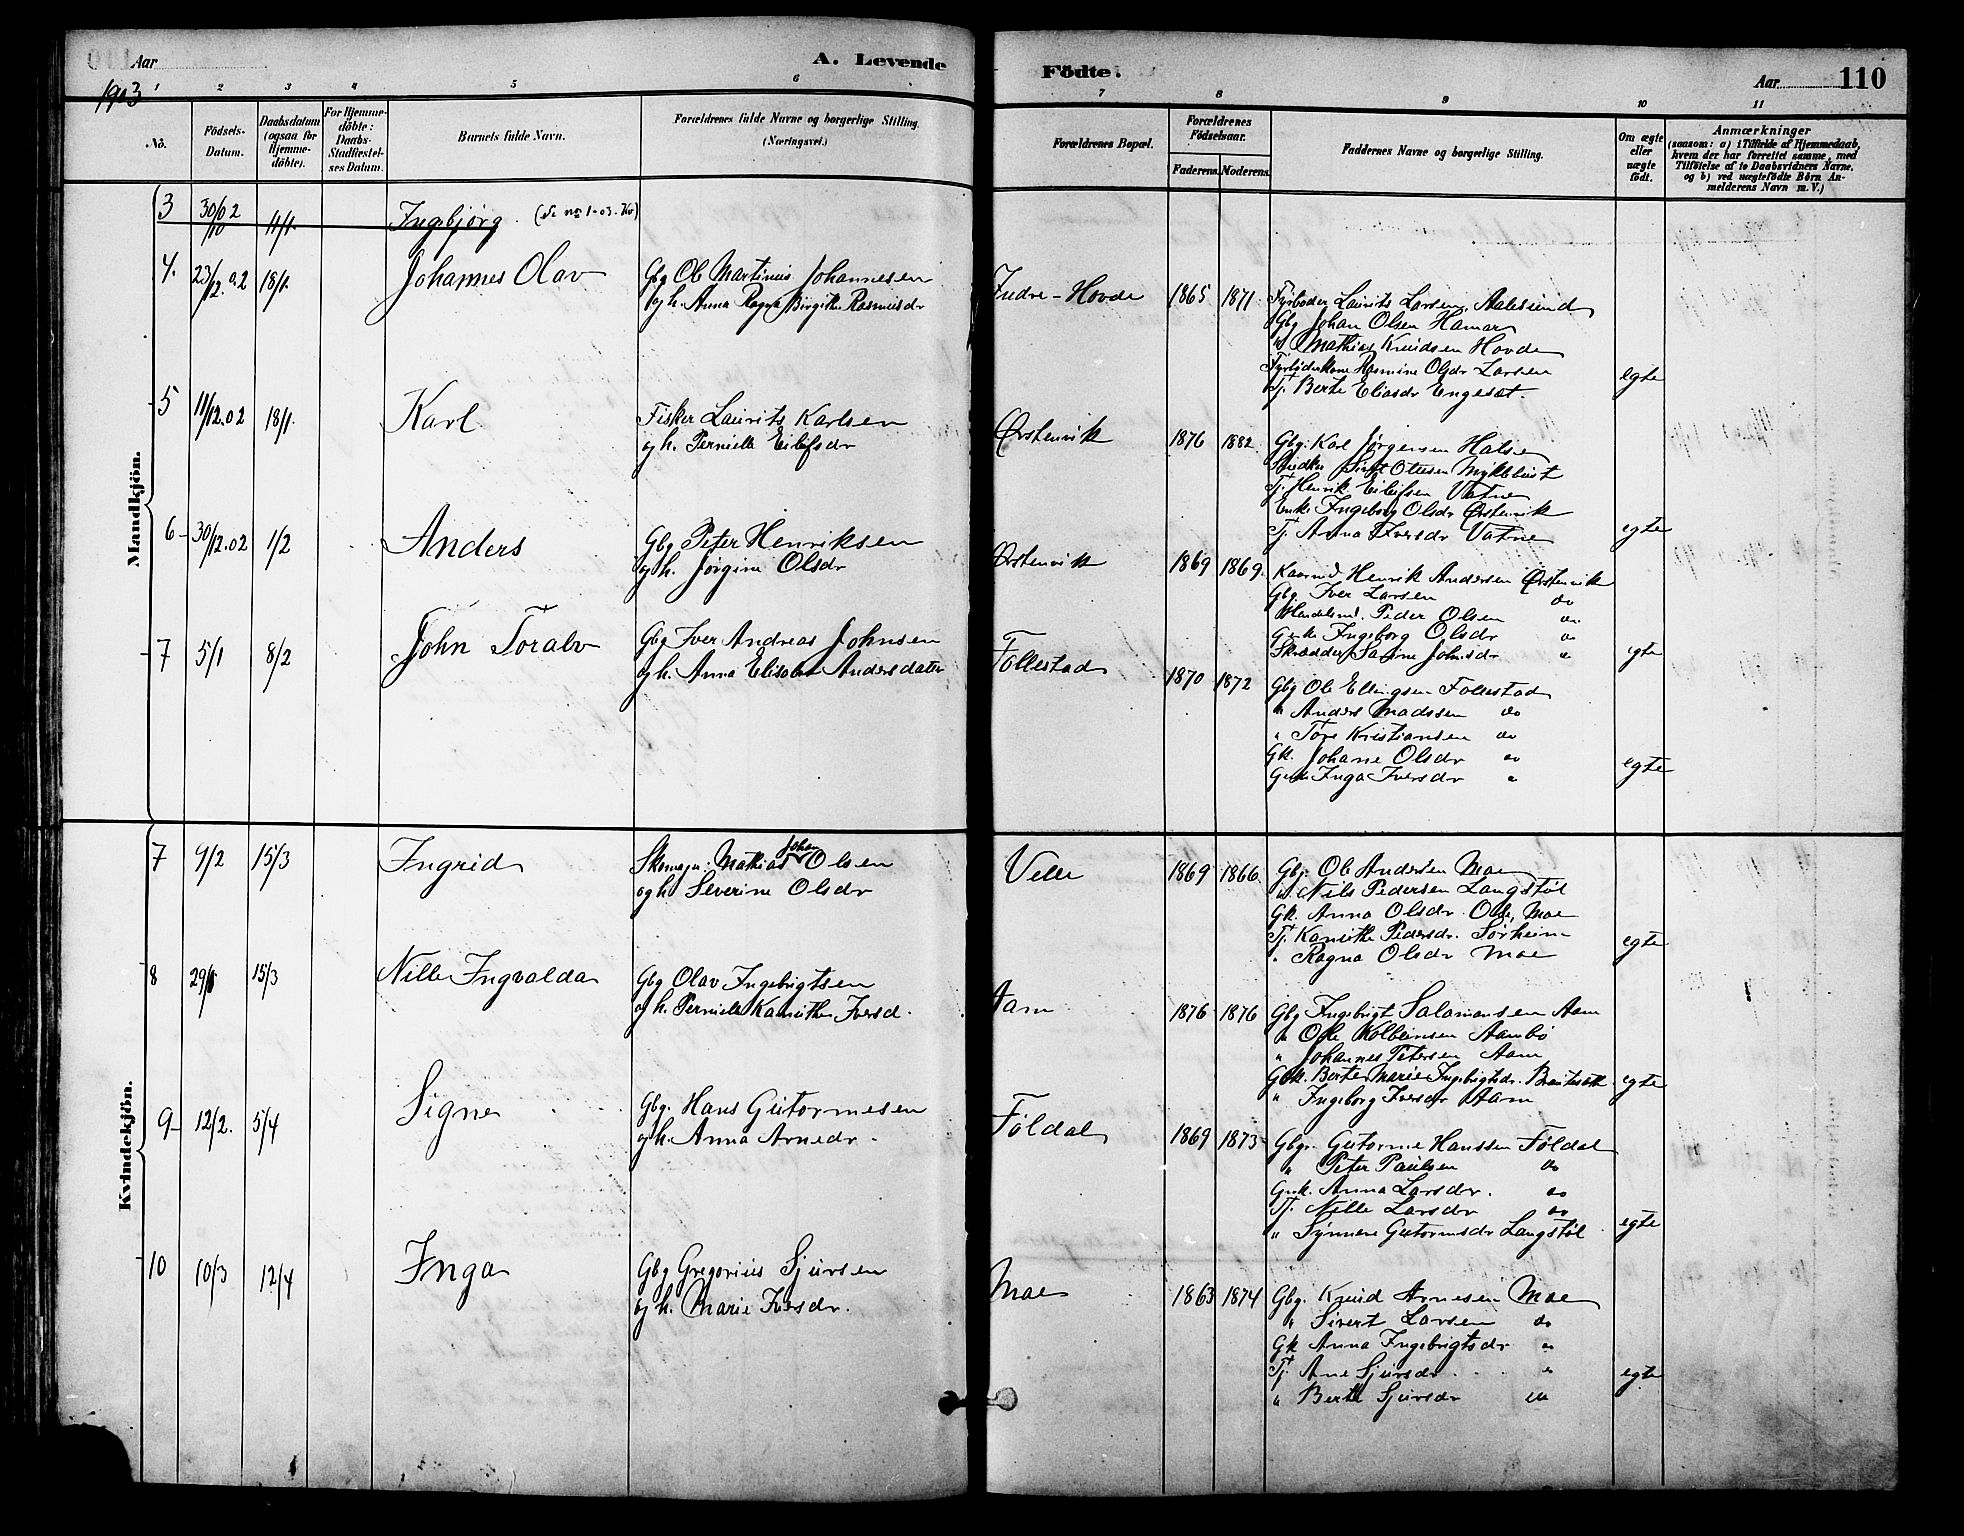 Aar
1903
A. Levende
Födte.
Aar
110
1 2 3 4 5 6 7 8 9 10 11
No.
Födsels-
Datum.
Daabsdatum
(ogsaa for
Hjemme-
döbte).
For Hjemme-
döbte:
Daabs-
Stadfæstel-
ses Datum.
Barnets fulde Navn.
Forældrenes fulde Navne og borgerlige Stilling.
(Næringsvei.)
Forældrenes Bopæl.
Forældrenes
Födselsaar.
Faderens. Moderens.
Faddernes Navne og borgerlige Stilling.
Om ægte
eller
uægte
födt.
Anmærkninger
(saasom: a) i Tilfælde af Hjemmedaab,
hvem der har forrettet samme, med
Tilföielse af to Daabsvidners Navne,
og b) ved uægtefödte Börn An-
melderens Navn m. V.)
Mandkjön.
3 30/10 02 11/1 Ingebjørg. (Se no 1-03. Kv)
4. 23/12.02 18/1. Johannes Olav
Gbg Ole Martinus Johannesen
og h. Anna Ragna Birgitte Rasmusdr
Indre-Hovde 1865 1871.
Fyrbøder Laurits Larsen, Aalesund
Gbg Johan Olsen Hamar
" Mathias Knudsen Hovde
Fyrbøderkone Rasmine Olsdr Larsen
Tj. Berte Eliasdr Engeset.
egte
5 11/12.02 18/1. Karl
Fisker Laurits Karlsen
og h. Pernille Eilefsdr
Ørstenvik 1876 1882
Gbg. Karl Jørgensen Halse
Snedker Sivert Olsen Myklebust
Tj. Henrik Eilefsen Vatne
Enke Ingeborg Olsdr Ørstenvik
Tj. Anna Iversdr Vatne
egte
6 30/12.02 1/2 Anders
Gbg Peter Henriksen
og h. Jørgine Olsdr
Ørstenvik 1869 1869.
Kaarmd Henrik Andersen Ørstenvik
Gbg. Iver Larsen do
Handelsmd. Peder Olsen do
Gmk. Ingeborg Olsdr "
Skrædder Sarine Johnsdr "
egte
7 5/1 8/2 John Toralv
Gbg Iver Andreas Johnsen
og h. Anna Elisabet Andersdatter
Follestad 1870 1872
Gbg Ole Ellingsen Follestad
" Anders Madssen do
" Tore Kristiansen do
Gk. Johane Olsdr do
Gmk Inga Iversdr "
egte
Kvindekjön.
7 9/2 15/3 Ingrid
Skomagr. Mathias Johan Olsen
og h. Severine Olsdr
Velle 1869 1866
Gbg. Ole Andersen Moe
" Nils Pedersen Langstøl
Gk. Anna Olsdr. Ose, Moe
Tj. Kanuthe Pedersdr. Sørheim
" Ragna Olsdr Moe
egte
8 15/3 Nille Ingvalda
Gbg Olav Ingebrigtsen
og h. Pernille Kanuthe Iversd.
Aam 1876 1876
Gbg Ingebrigt Salamonsen Aam
" Ole Kolbeinsen Aambø
" Johannes Petersen Aam
Gbk. Berte Marie Ingebrigtsdr.
" Ingeborg Iversdr Aam
egte
9 12/2. 5/4 Signe
Gbg. Hans Guttormesen
og h. Anna Arnedr.
Føldal 1869 1873
Gbg. Guttorme Hanssen Føldal
" Peter Paulsen do
Gmk. Anna Larsdr. do
Tj. Nille Larsdr do
" Synneve Guttormsdr Langstøl
egte
10 10/3 12/4 Inga
Gbg Gregorius Sjursen
og h. Marie Iversdr.
Moe 1863 1874
Gbg. Knud Arnesen Moe
" Sivert Larsen do
Gk Anna Ingebrigtsdr "
Tj. Ane Sjursdr. "
" Berte Sjursdr do
egte